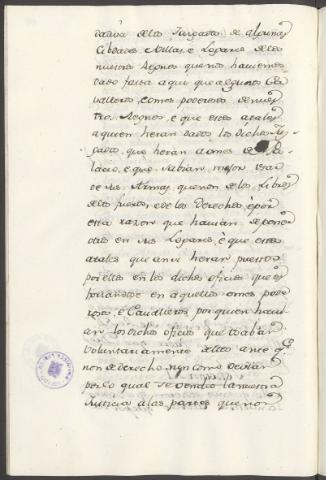 datava delos Jurgados de algunas
Cibdades Villas, e Logares delos
nuestros Regnos que nos haviemos
dado fasta aqui que algunos Ca-
valleros, e omes poderosos de nues-
tro Regnos, é que estos atales
aquien heran dados los dichos Juz-
gados que heran a omes de Pa-
lacio, é que sabian mejor usar
de las Armas que non de los Libros
delos fueros, e de los Derechos é por
esta razon que havian de poner
otros en sus Logares, é que estos
atales que ansi heran puestos
por ellos en los dichos oficios que es-
forzandose en aquellos omes pode-
rosos, é Cavalleros por quien havi-
an los dichos oficios que usaban
voluntariamente dellos ante que
non de derecho sign como devian
per lo qual se vendio la nuestra
Justicia a las partes que non